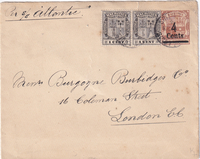 Atlantic
4
Cents
Messrs Burgoyne Burbidges Co
16 Coleman Street
London E.C